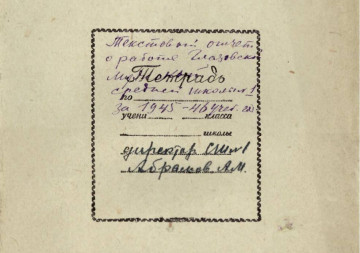 Текстовый отчет
о работе Глазовской
Тетрадь
средней школы №1
по
за 1945-46 уч. г.
учени класса
школы
директор СШ №1
Абрамов А.М.